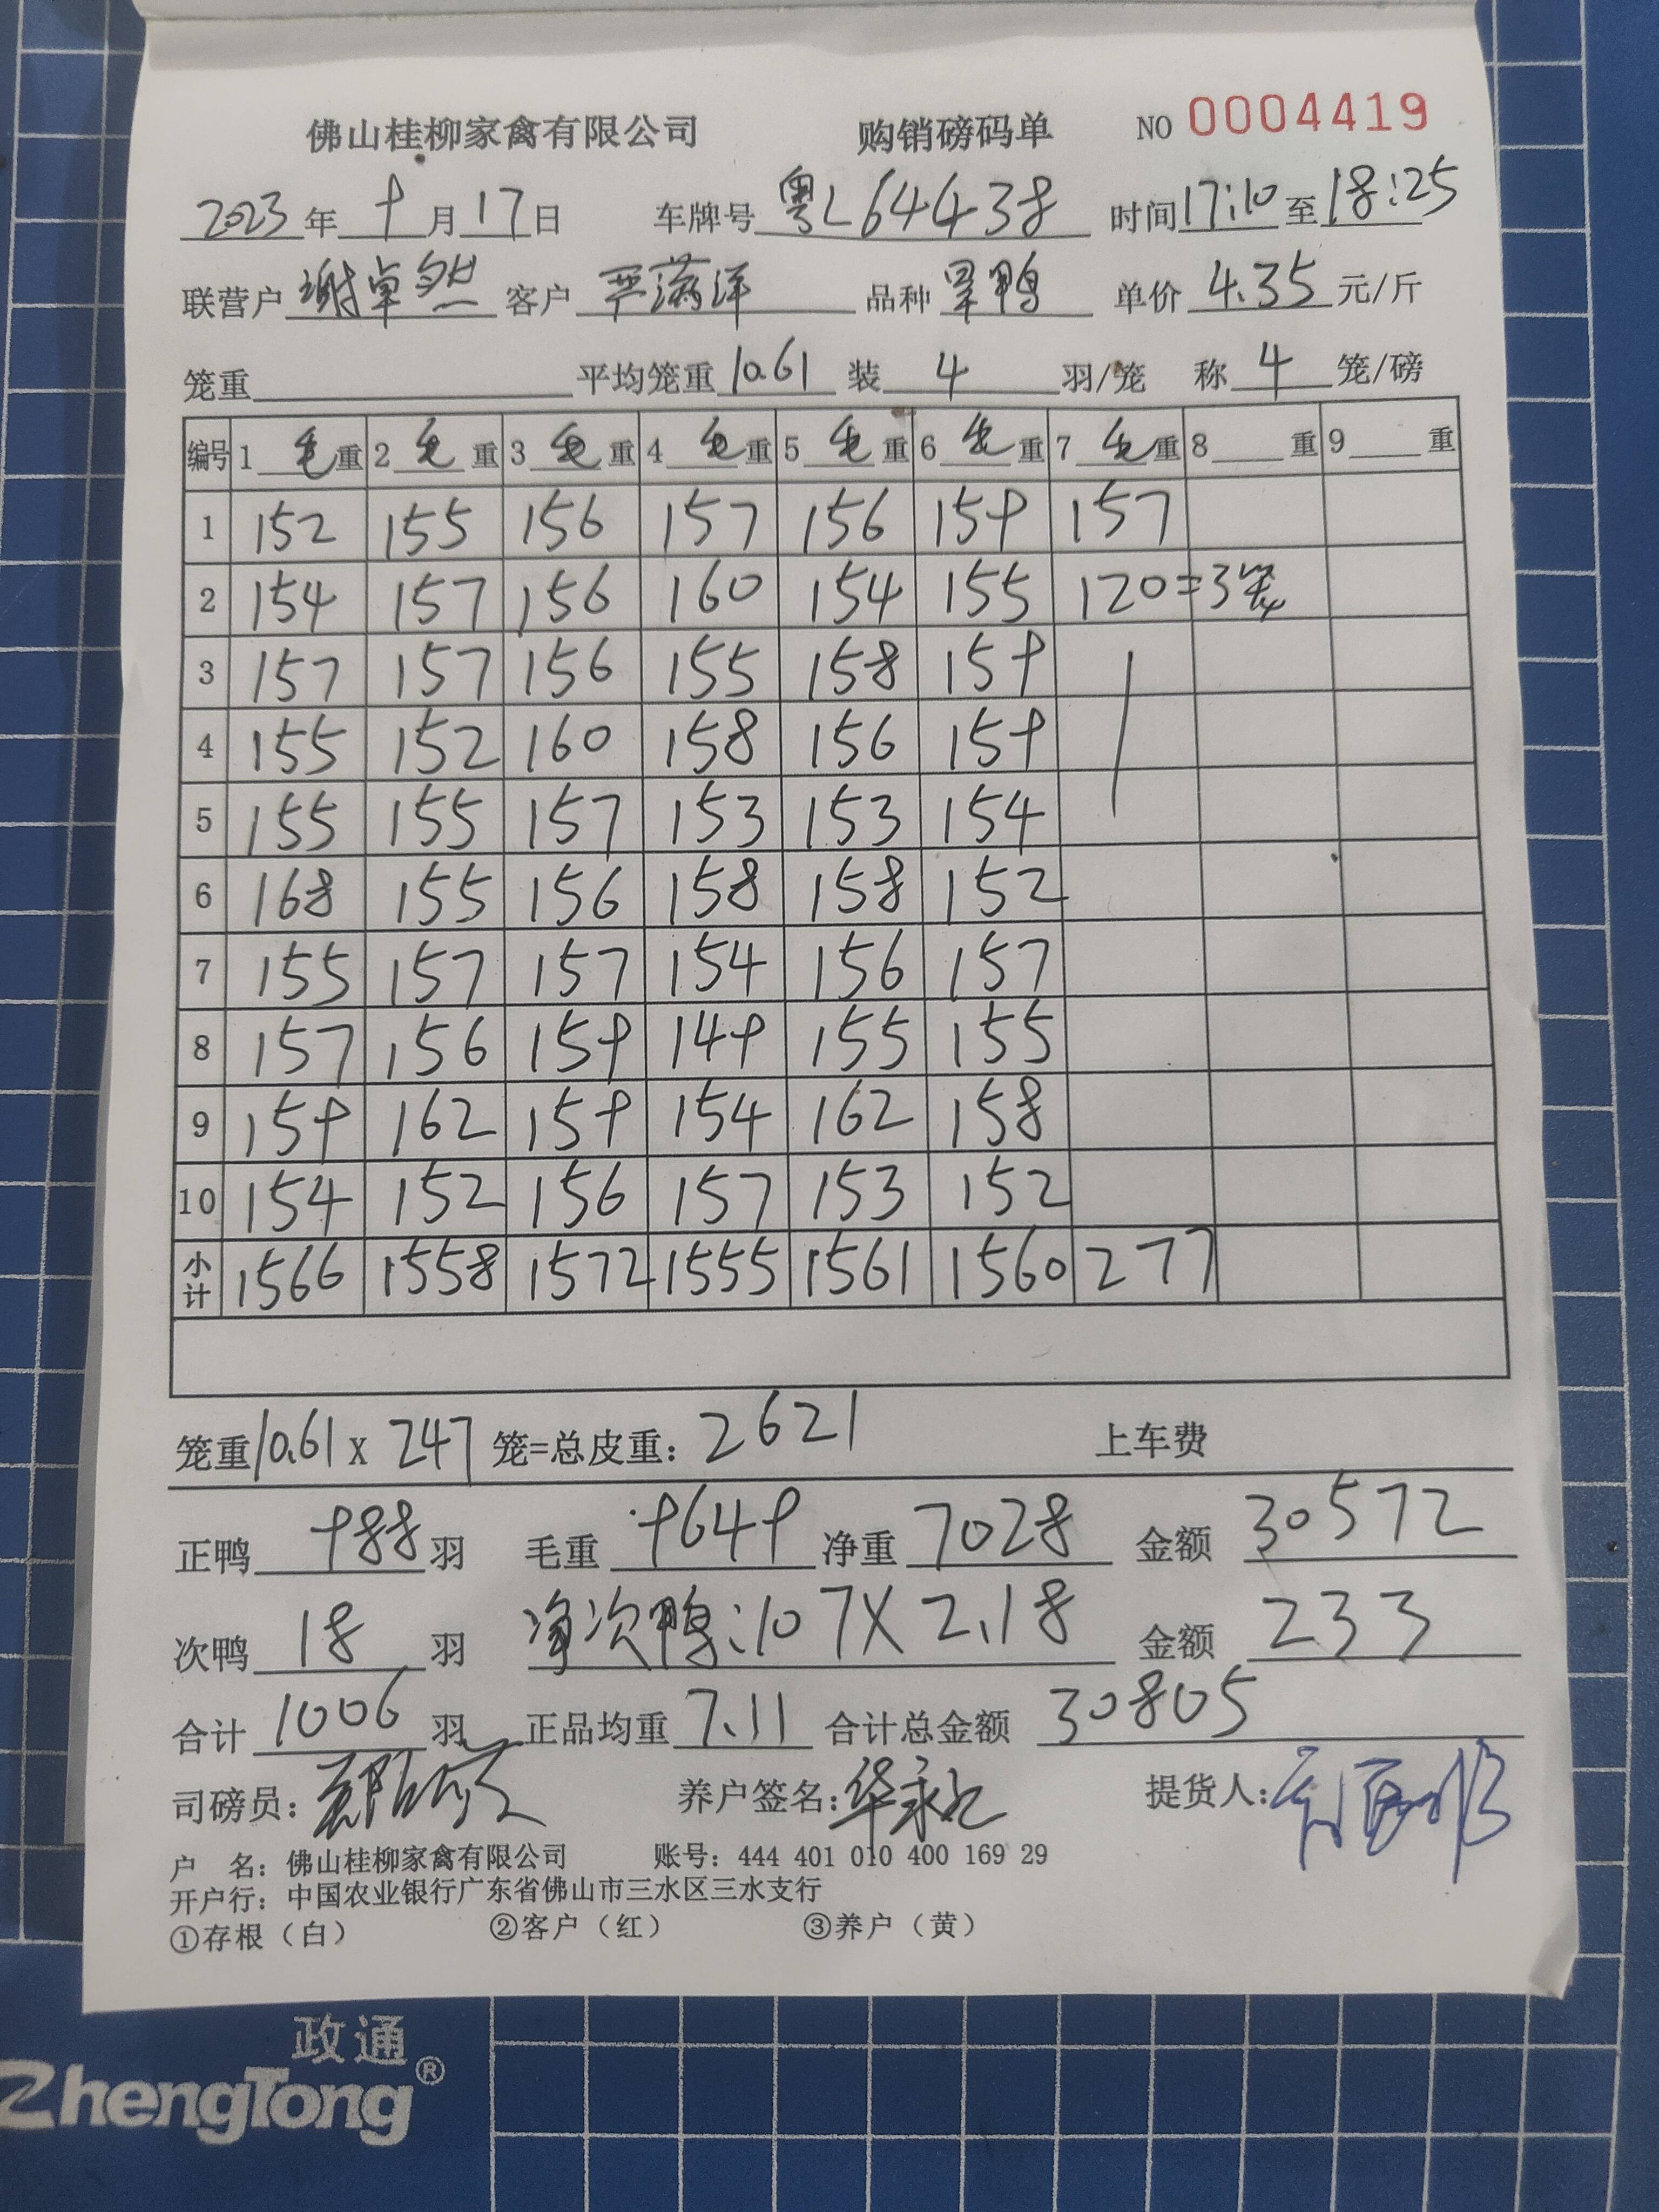 佛山桂柳家禽有限公司 购销磅码单 NO 0004419
2023年十月17日 车牌号 粤L64438 时间17:10至18:25
联营户 谢卓然 客户 严满洋 品种 旱鸭 单价 4.35 元/斤
笼重 平均笼重 10.61 装 4 羽/笼 称 4 笼/磅
编号 1 毛重 2 毛重 3 毛重 4 毛重 5 毛重 6 毛重 7 毛重 8 重 9 重
1 152 155 156 157 156 159 157
2 154 157 156 160 154 155 120=3笼
3 157 157 156 155 158 159
4 155 152 160 158 156 159
5 155 155 157 153 153 154
6 168 155 156 158 158 152
7 155 157 157 154 156 157
8 157 156 159 149 155 155
9 159 162 159 154 162 158
10 154 152 156 157 153 152
小计 1566 1558 1572 1555 1561 1560 277
笼重10.61 X 247 笼=总皮重: 2621 上车费
正鸭 988 羽 毛重 9649 净重 7028 金额 30572
次鸭 18 羽 净次鸭:107X2.18 金额 233
合计 1006 羽 正品均重 7.11 合计总金额 30805
司磅员: 养户签名: 提货人:
户 名: 佛山桂柳家禽有限公司 账号: 444 401 010 400 169 29
开户行: 中国农业银行广东省佛山市三水区三水支行
①存根（白） ②客户（红） ③养户（黄）
政通
ZhengTong®